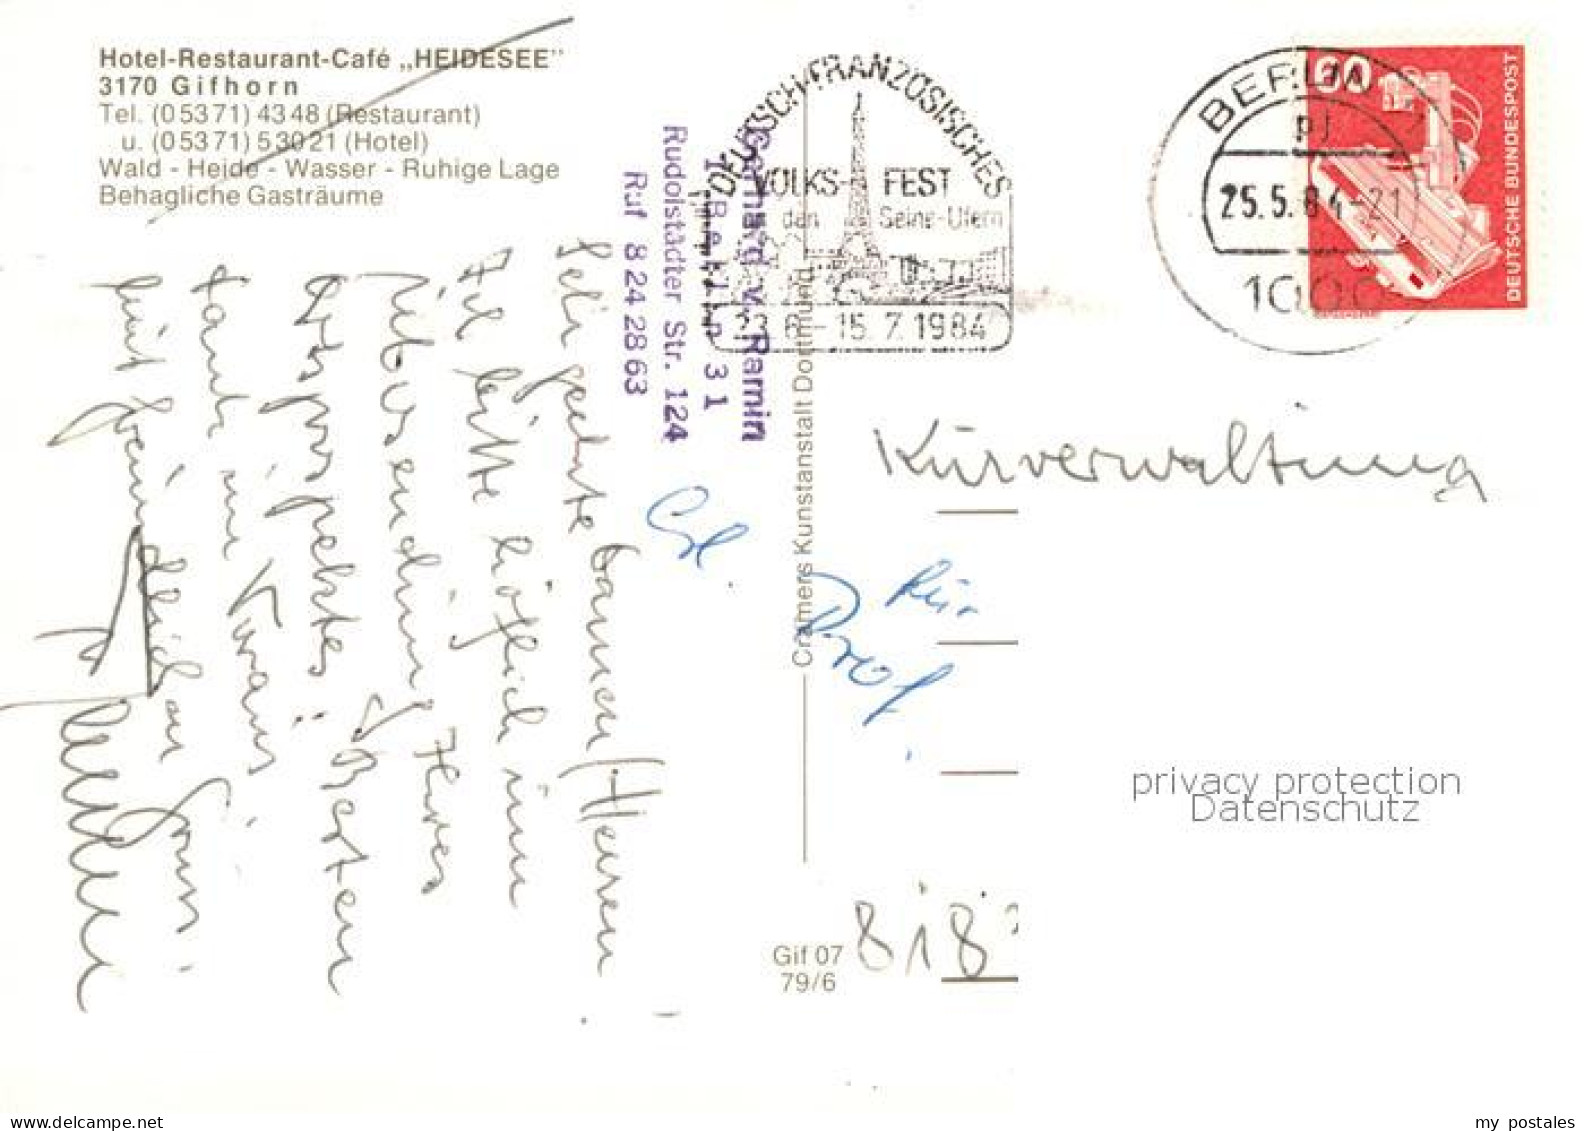 Hotel-Restaurant-Café „HEIDESEE"
3170 Gifhorn
Tel. (05371) 4348 (Restaurant)
u. (05371) 53021 (Hotel)
Wald - Heide - Wasser - Ruhige Lage
Behagliche Gasträume
DEUTSCH-FRANZÖSISCHES
VOLKS- FEST
den Seine-Ufern
23.6.-15.7.1984
BERLIN
25.5.84-21
1000
60
DEUTSCHE BUNDESPOST
Gerhard v. Ramin
1 Berlin 31
Rudolstädter Str. 124
Ruf 8 24 28 63
Sehr geehrte Damen/Herren
Ich bitte höflich um
Übersendung Ihres
Ortsprospektes
Besten
Dank im Voraus
mit freundlichen Gruss
Cramers Kunstanstalt Dortmund
Kurverwaltung
Prof.
818
Gif 07
79/6
privacy protection
Datenschutz
my postales